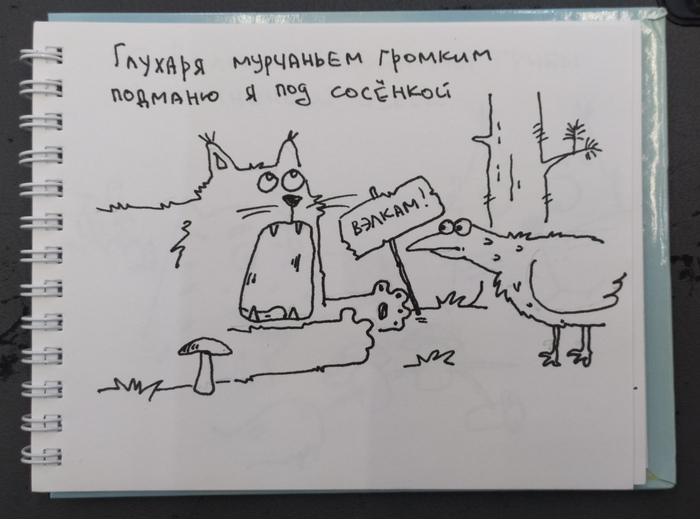 Глухаря мурчаньем громким
подманю я под сосёнкой
ВЭЛКАМ!